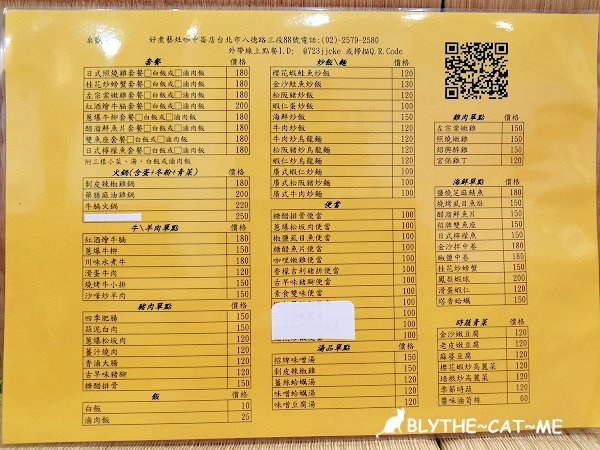 好煮藝灶咖中崙店台北市八德路三段88號電話:(02)-2579-2580
外帶線上點餐I.D: @723jjcke 或掃描Q.R.Code
套餐 價格
日式照燒雞套餐□白飯或□滷肉飯 180
桂花炒螃蟹套餐□白飯或□滷肉飯 180
左宗棠嫩雞套餐□白飯或□滷肉飯 180
紅酒燴牛腩套餐□白飯或□滷肉飯 200
蔥爆牛柳套餐□白飯或□滷肉飯 180
醋溜鮮魚片套餐□白飯或□滷肉飯 180
雙魚座套餐□白飯或□滷肉飯 180
日式檸檬魚套餐□白飯或□滷肉飯 180
附三樣小菜、湯、白飯或滷肉飯
火鍋(含蛋+冬粉+青菜) 價格
剝皮辣椒雞鍋 180
藥膳麻油雞鍋 200
牛腩火鍋 220
250
牛\羊肉單點 價格
紅酒燴牛腩 180
蔥爆牛柳 150
川味水煮牛 180
滑蛋牛肉 150
燒烤牛小排 150
沙嗲炒羊肉 150
豬肉單點 價格
四季肥腸 150
蒜泥白肉 150
蔥爆松坂肉 120
薑汁燒肉 120
香滷大腸 120
古早味豬腳 120
糖醋排骨 150
飯 價格
白飯 10
滷肉飯 25
炒飯\麵 價格
櫻花蝦鮭魚炒飯 120
金沙鮭魚炒飯 130
松阪豬炒飯 120
蝦仁蛋炒飯 100
海鮮炒飯 150
牛肉炒飯 120
牛肉炒烏龍麵 120
松阪豬炒烏龍麵 120
蝦仁炒烏龍麵 120
廣式松阪豬炒麵 120
廣式蝦仁炒麵 120
廣式牛肉炒麵 120
便當 價格
糖醋排骨便當 100
蔥爆松坂肉便當 100
椒鹽虱目魚便當 100
糖醋魚片便當 100
咖哩嫩雞便當 100
香檬吉利豬排便當 100
古早味豬腳便當 100
素食雙味便當 100
100
100
100
100
湯品單點 價格
招牌味噌湯 150
剝皮辣椒雞 150
薑絲蛤蠣湯 120
味噌蛤蠣湯 120
味噌豆腐湯 120
雞肉單點 價格
左宗棠嫩雞 150
照燒嫩雞 150
紹興醉雞 150
宮保雞丁 120
海鮮單點 價格
鹽燒芝麻鯖魚 180
燒烤虱目魚肚 150
醋溜鮮魚片 150
招牌雙魚座 150
日式檸檬魚 150
金沙拌中卷 180
椒鹽中卷 180
桂花炒螃蟹 150
鳳梨蝦球 150
滑蛋蝦仁 150
塔香蛤蠣 150
時蔬青菜 價格
金沙嫩豆腐 120
老皮嫩豆腐 120
麻婆豆腐 120
櫻花蝦炒高麗菜 120
培根炒高麗菜 120
季節時蔬 120
醬味滷筍絲 60
BLYTHE~CAT~ME